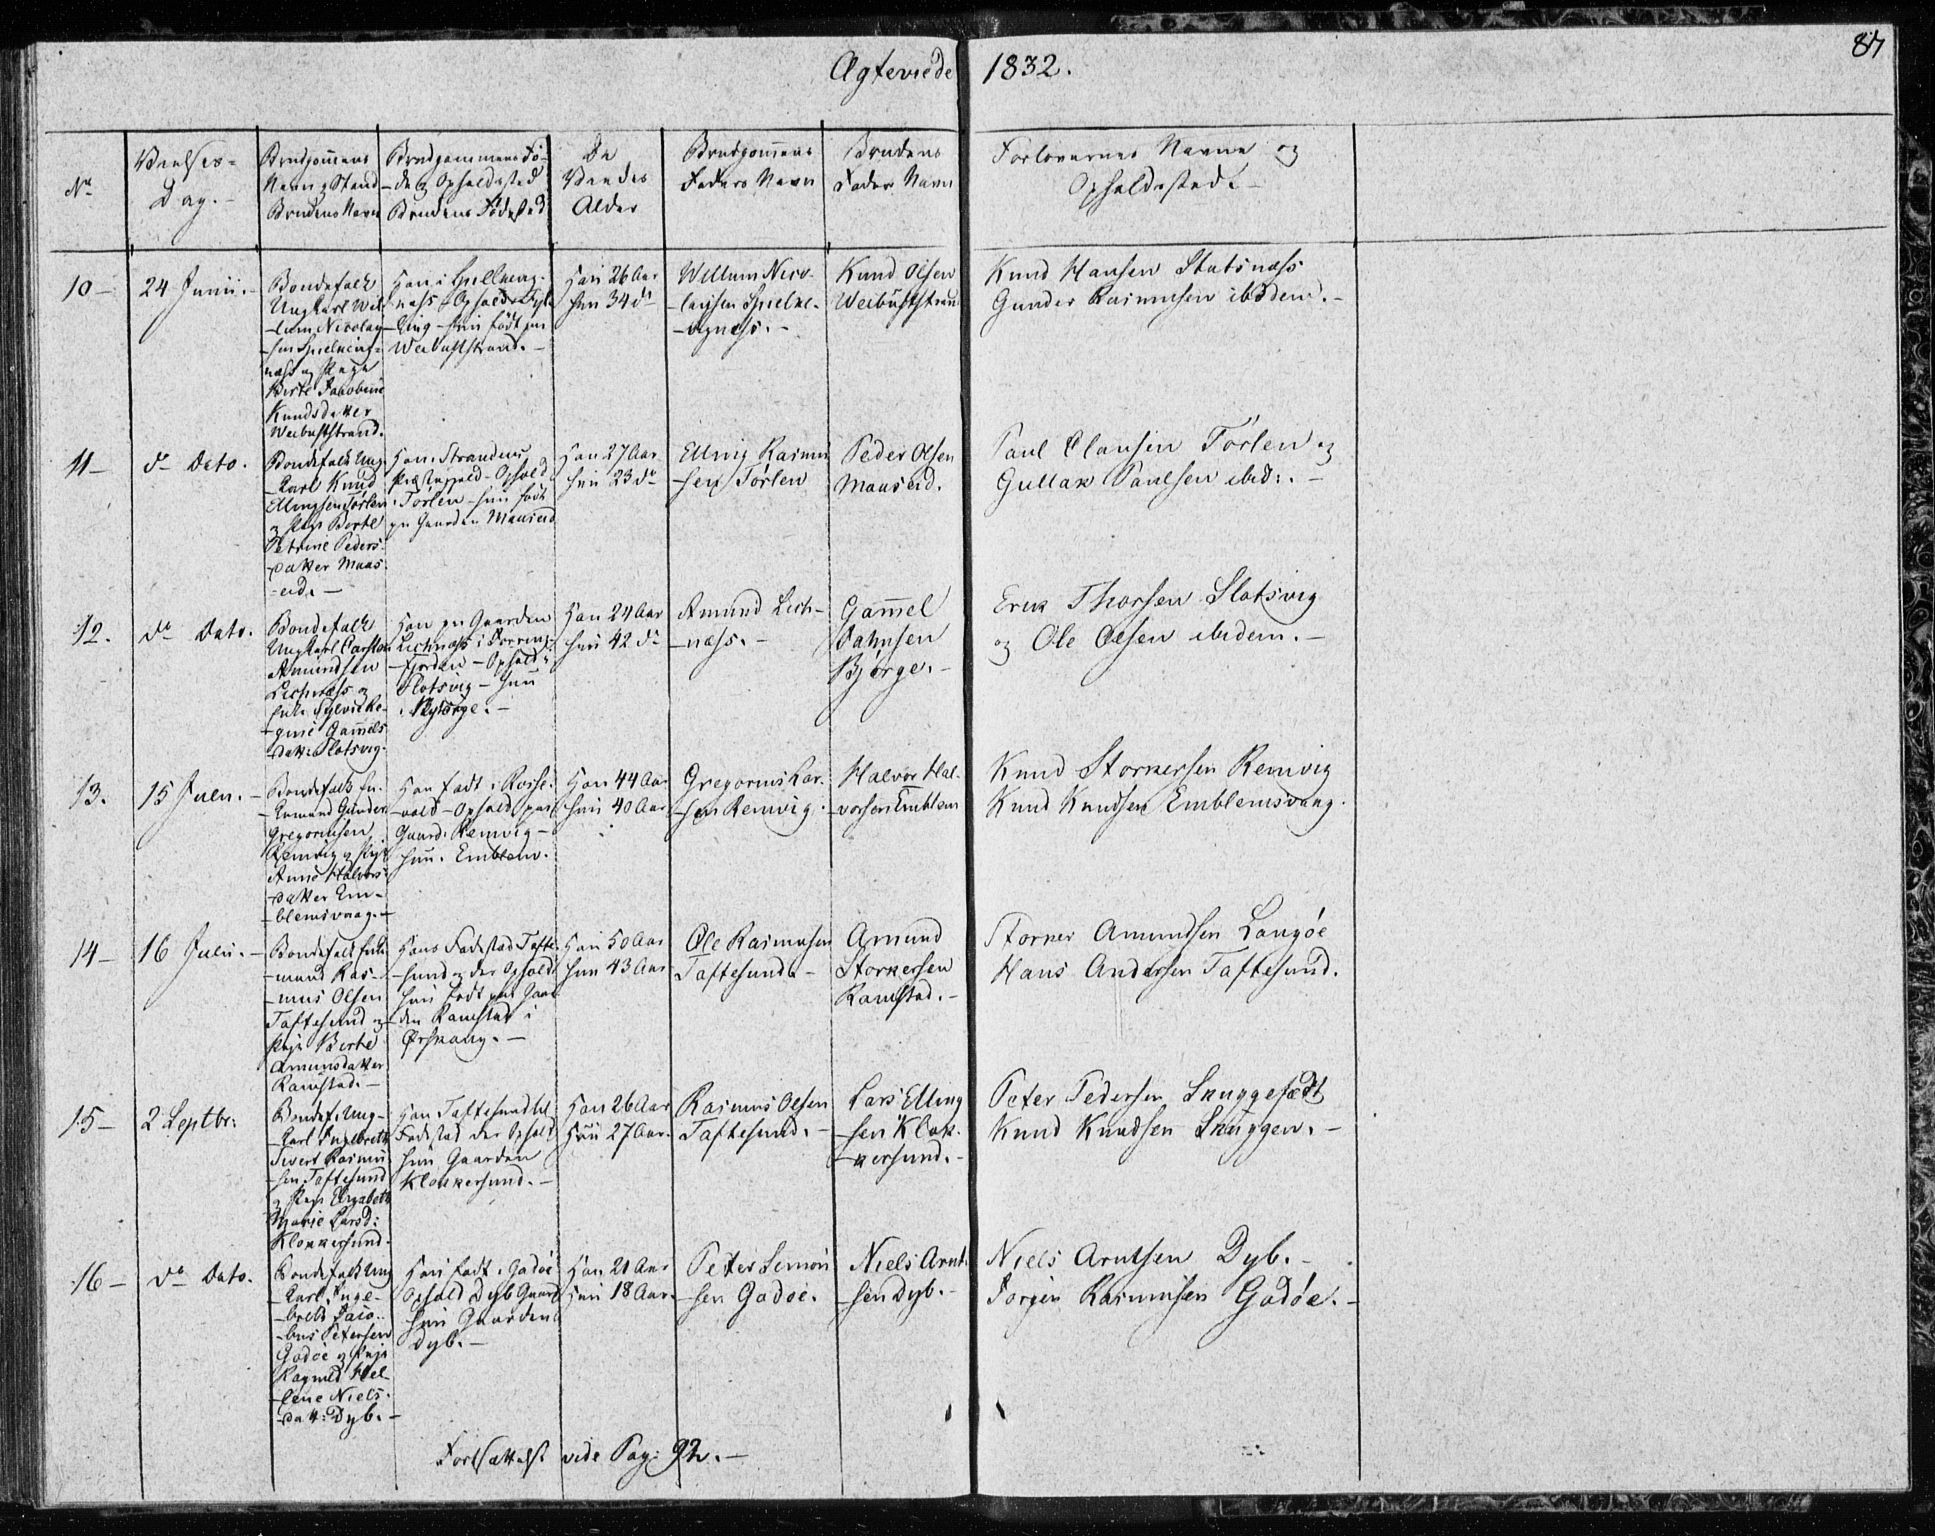 Ægteviede 1832.
87
No
Vielses-
Dag.-
Brudgommens
Navn og Stand
Brudens Navn
Brudgommens Fø-
-de og Opholdssted
Brudens Fødested
De
Viedes
Alder
Brudgommens
Faders Navn
Brudens
Faders Navn
Forlovernes Navne og
Opholdssted.-
10-
24 Junii.-
Bondefolk
Ungkarl Wil-
-lum Nicolay-
-sen
-næss og Pige
Birte Jacobine
Knudsdatter
Weibustsstrand.
Han i
-næss - Ophold
- hun født paa
Weibustsstrand.-
Han 26 Aar
Hun 34 do
Willum Nico-
-laysen
Knud Olsen
Weibustsstrand
Knud Hansen Slatsnæss
Gunder Rasmusen ibidem.-
11-
do Dato.
Bondefolk Ung-
-karl Knud
Ellingsen Tørlen
og Pige Berte
Petrine Peders-
-datter Maas-
-eid.-
Han Strandens
Præstegjeld - Ophold
Tørlen - hun født
paa Gaarden Maaseid
Han 27 Aar
Hun 23 do
Elling Rasmu-
-sen Tørlen
Peder Olsen
Maaseid.
Paul Clausen Tørlen og
Gullak Paulsen ibid:.-
12.
do Dato.
Bondefolk
Ungkarl Carsten
Amundsen
Lichnæss og
Enke Sylvie Re-
-gine Gammels-
-datt: Slotsvig.
Han paa Gaarden
Lichnæss i
-Fjorden - Ophold
Slotsvig - hun
i Bjørge.-
Han 24 Aar
Hun 42 do
Amund Lich-
-næss.-
Gammel
Dahnsen
Bjørge.-
Erik Thorsen Slotsvig
og Ole Olsen ibidem.-
13.
15 Julii.-
Bondefolk En-
-kemand Gunder
Gregoriusen
Remvig og Pige
Anne Halvors-
-datter Em-
-blemsvaag.-
Han født i Rosse-
-vold - Ophold paa
Gaard: Remvig -
hun: Emblem.
Han 44 Aar
Hun 40 Aar
Gregorius Lar-
-sen Remvig.
Halvor Hal-
-vorsen Emblem
Knud Storkersen Remvig
Knud Knudsen Emblemsvaag.
14-
16 Julii.-
Bondefolk Enke-
-mand Ras-
-mus Olsen
Taftesund og
Pige Berte
Amunsdatter
Ramstad.-
Hans Fødested Tafte-
-sund og der Ophold
hun født paa Gaar-
-den Ramstad i
Ørskoug.-
Han 50 Aar
Hun 43 Aar
Ole Rasmusen
Taftesund.-
Amund
Storkersen
Ramstad.-
Storker Amundsen Langøe
Hans Andersen Taftesund.
15-
2 Septbr:
Bondef: Ung-
-karl Ingebrecth
Sivert Rasmu-
-sen Taftesund
og Pige Elisabeth
Marie Larsd:
Klokkersund.
Han Taftesund til
Fødested der Ophold
hun Gaarden
Klokkersund.-
Han 26 Aar
Hun 27 Aar.
Rasmus Olsen
Taftesund.-
Lars Elling-
-sen Klok-
-kersund.-
Peter Pedersen Snuggesædt
Knud Knudsen Snuggen.-
16-
do Dato.
Bondefolk Ung-
-karl Inge-
-brebt Jaco-
-bus Petersen
Godøe og Pige
Ragnild Hel-
-lene Niels-
-datt: Dyb.-
Han født i Godøe
Ophold Dyb Gaard
hun Gaarden
Dyb.-
Han 21 Aar
Hun 18 Aar.
Peter Simon-
-sen Godøe.
Niels Arnt-
-sen Dyb.-
Niels Arntsen Dyb.-
Jørgen Rasmusen Godøe.-
Fortsættelse vide Pag: 92.-